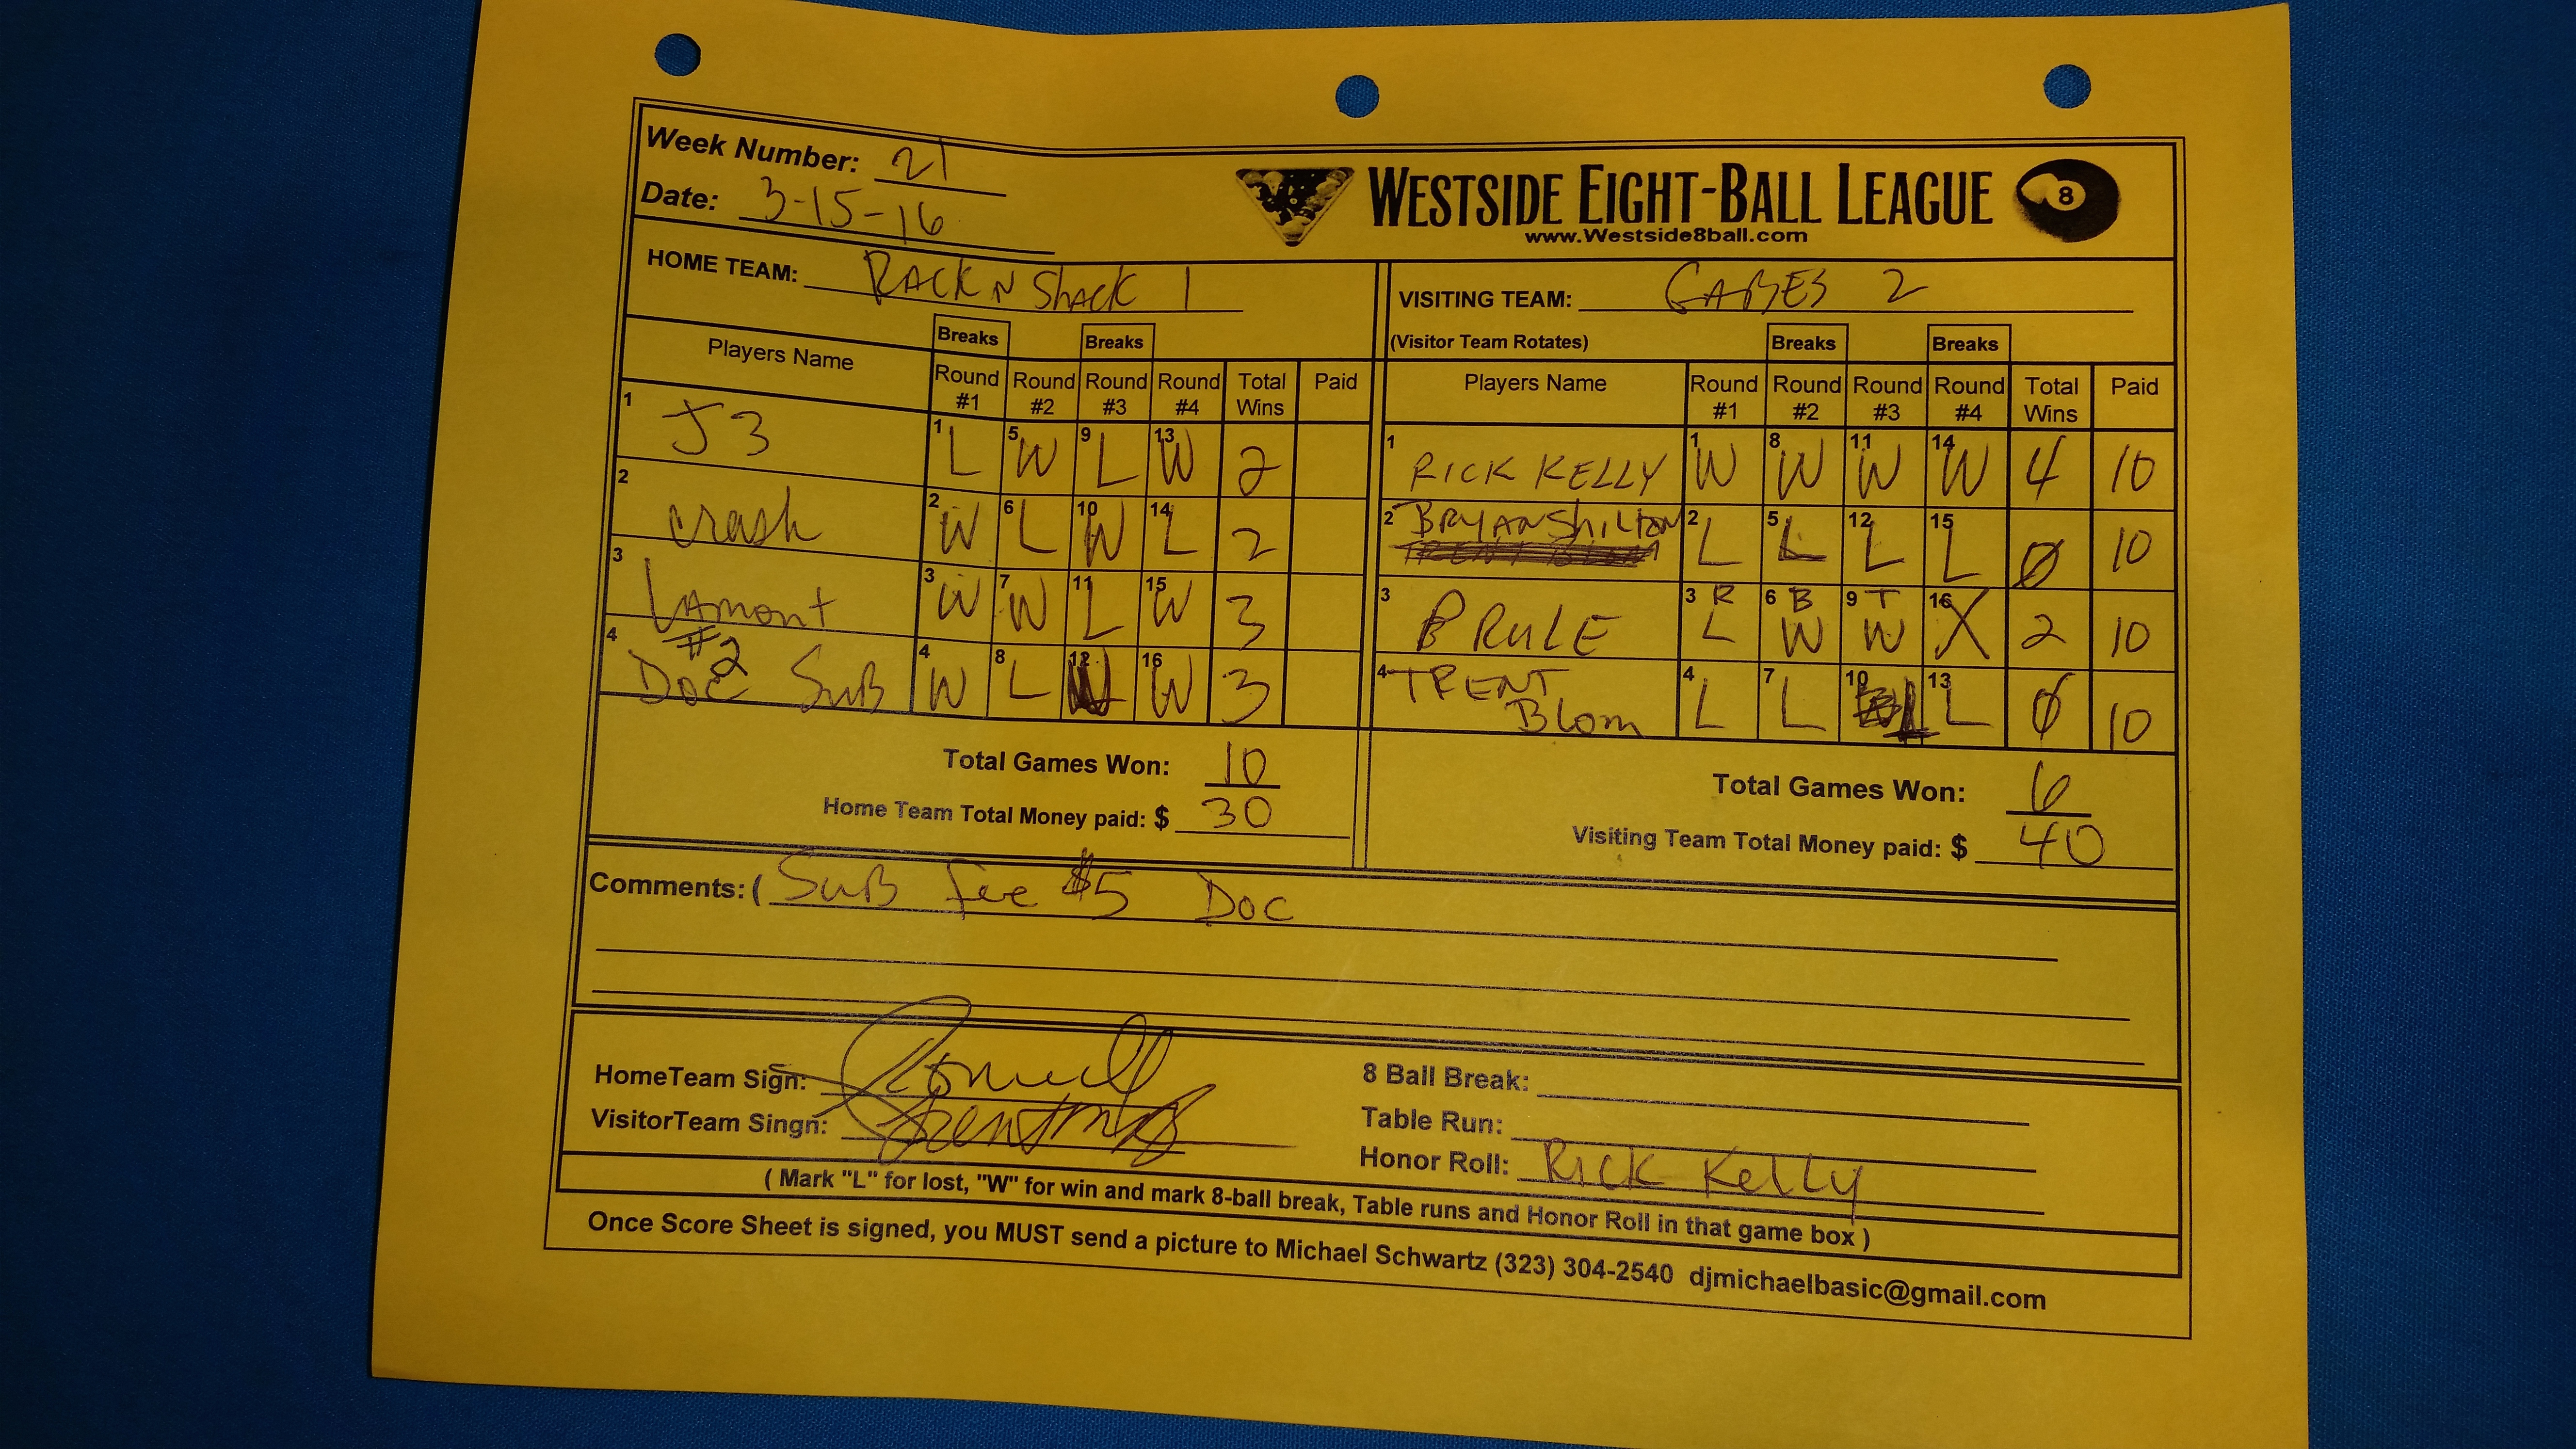 Week Number: 21
Date: 3-15-16
WESTSIDE EIGHT-BALL LEAGUE 8
www.Westside8ball.com
HOME TEAM: RACK N SHACK 1
VISITING TEAM: GABES 2
(Visitor Team Rotates)
Breaks Breaks Breaks Breaks
Players Name Round #1 Round #2 Round #3 Round #4 Total Wins Paid
1 J3 1 L 5 W 9 L 13 W 2
2 crash 2 W 6 L 10 W 14 L 2
3 Lamont 3 W 7 W 11 L 15 W 3
4 #2 Doc Sub 4 W 8 L 12 W 16 W 3
Total Games Won: 10
Home Team Total Money paid: $ 30
Players Name Round #1 Round #2 Round #3 Round #4 Total Wins Paid
1 RICK KELLY 1 W 8 W 11 W 14 W 4 10
2 BRYAN SHILTON 2 L 5 L 12 L 15 L 0 10
3 B RULE 3 R L 6 B W 9 T W 16 X 2 10
4 TRENT Blom 4 L 7 L 10 L 13 L 0 10
Total Games Won: 6
Visiting Team Total Money paid: $ 40
Comments: ( Sub fee $5 Doc
HomeTeam Sign:
VisitorTeam Singn:
8 Ball Break:
Table Run:
Honor Roll: Rick Kelly
( Mark "L" for lost, "W" for win and mark 8-ball break, Table runs and Honor Roll in that game box )
Once Score Sheet is signed, you MUST send a picture to Michael Schwartz (323) 304-2540 djmichaelbasic@gmail.com